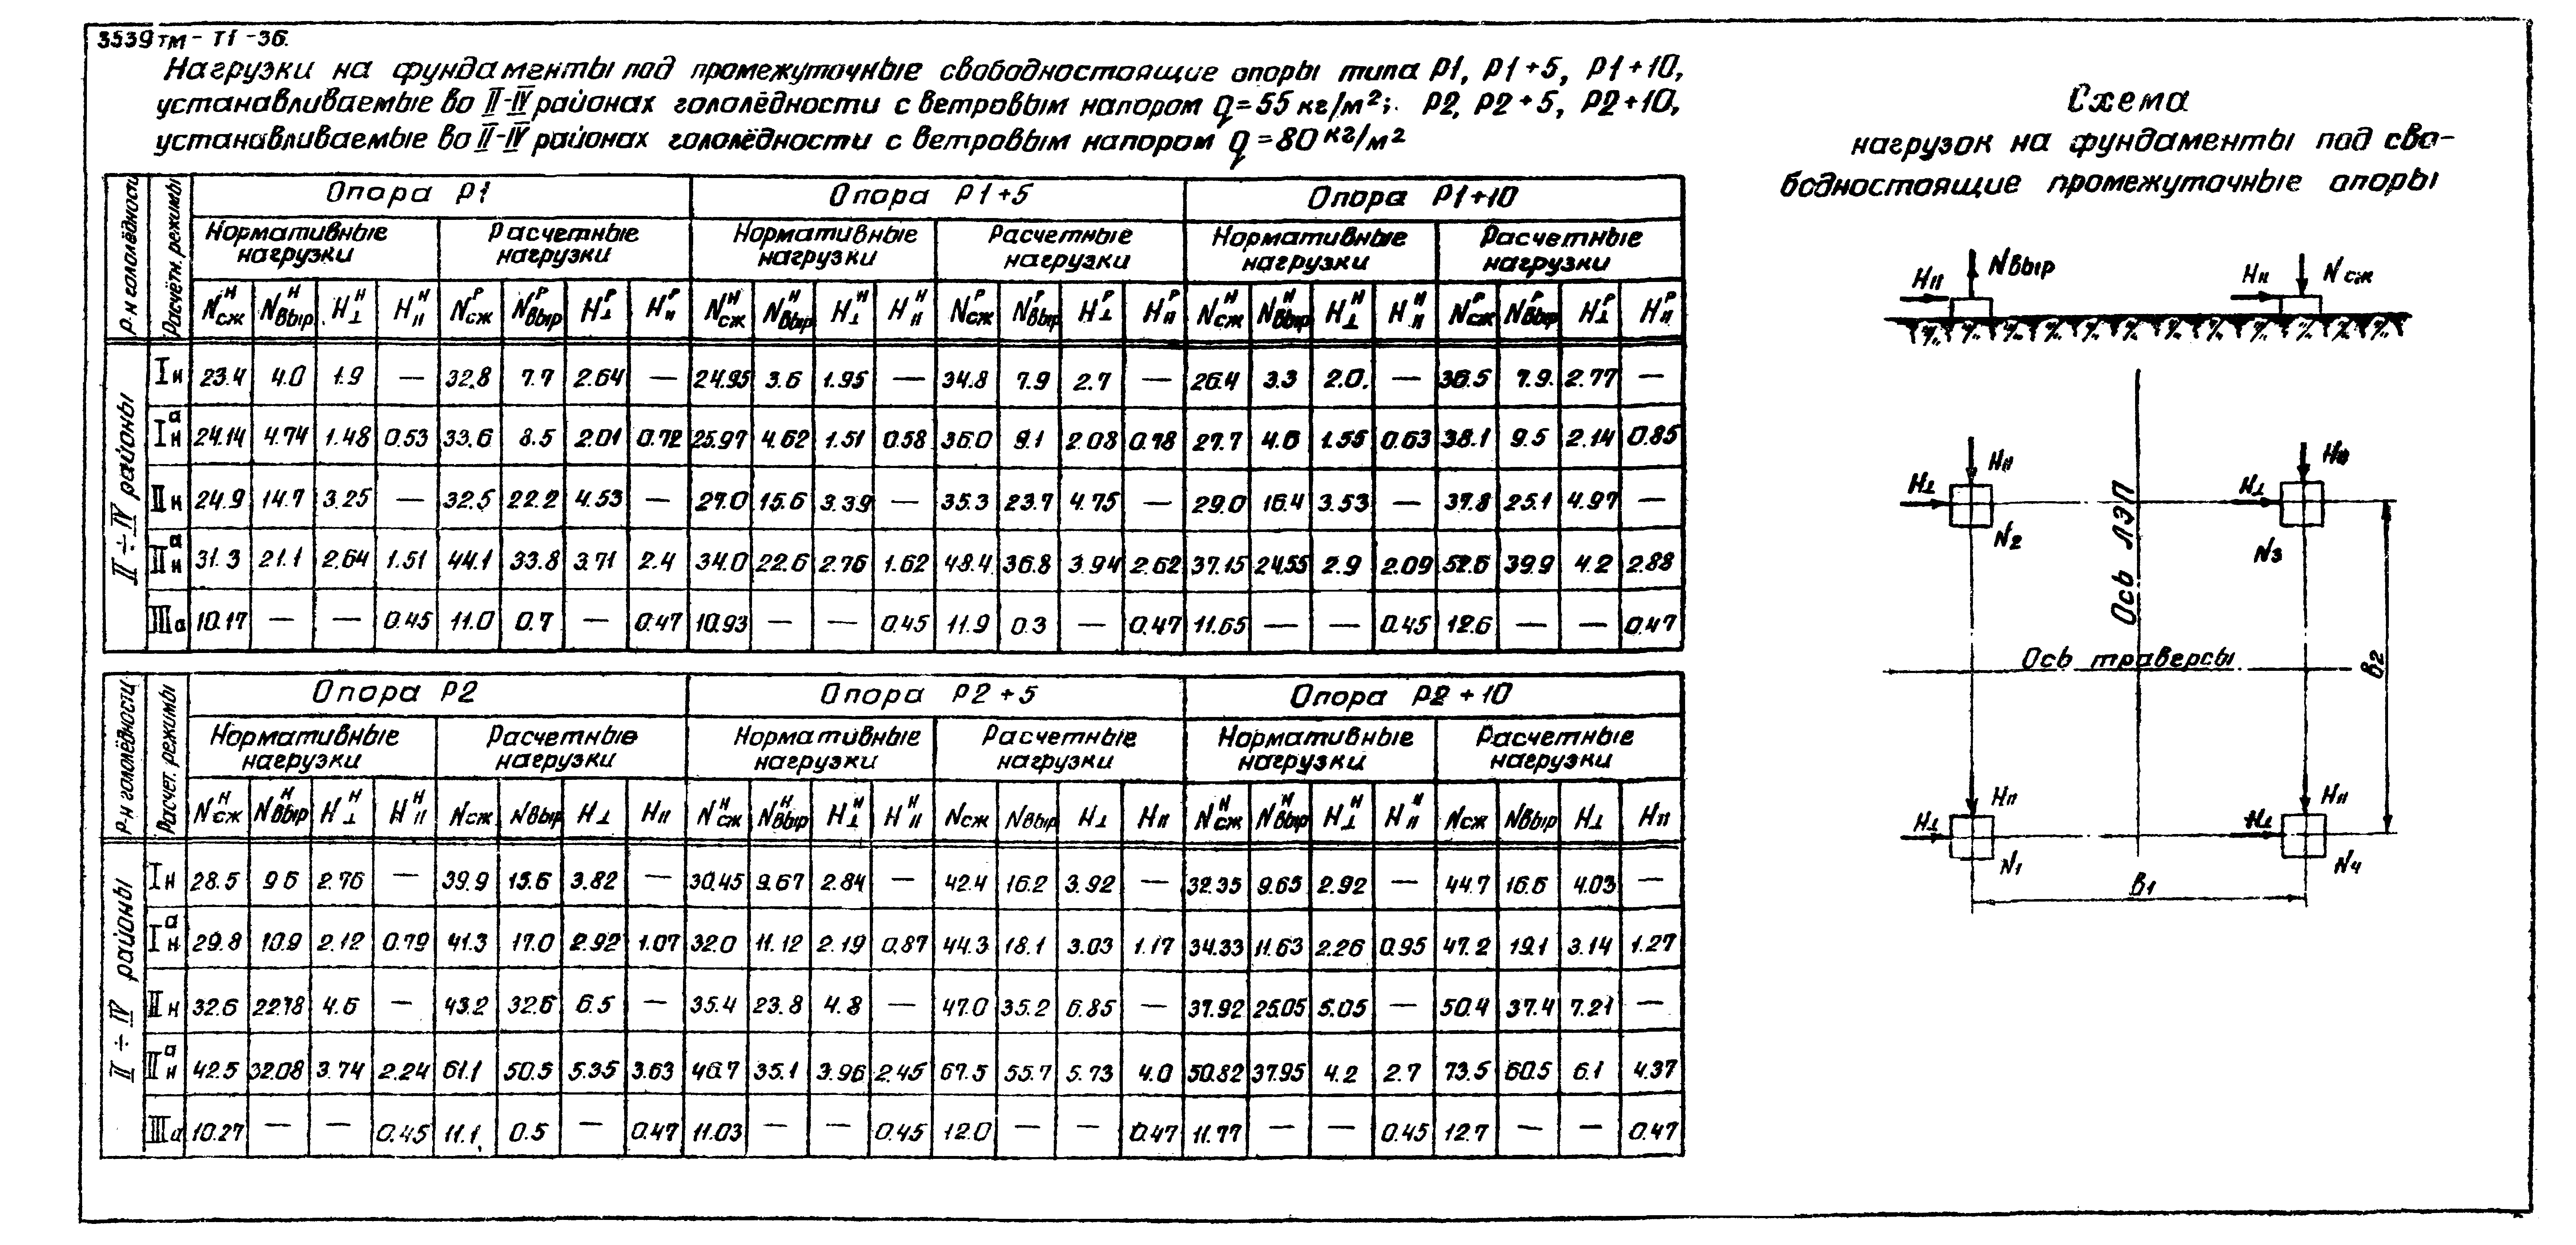 3539тм-Т1-36.
Нагрузки на фундаменты под промежуточные свободностоящие опоры типа Р1, Р1+5, Р1+10,
устанавливаемые во II-IV районах гололёдности с ветровым напором q=55 кг/м²; Р2, Р2+5, Р2+10,
устанавливаемые во II-IV районах гололёдности с ветровым напором q=80 кг/м²
Р-н гололёдности Расчётн. режимы Опора Р1 Опора Р1+5 Опора Р1+10
Нормативные нагрузки Расчетные нагрузки Нормативные нагрузки Расчетные нагрузки Нормативные нагрузки Расчетные нагрузки
Nсж^Н Nвыр^Н H⊥^Н HII^Н Nсж^Р Nвыр^Р H⊥^Р HII^Р Nсж^Н Nвыр^Н H⊥^Н HII^Н Nсж^Р Nвыр^Р H⊥^Р HII^Р Nсж^Н Nвыр^Н H⊥^Н HII^Н Nсж^Р Nвыр^Р H⊥^Р HII^Р
II÷IV районы
Iн 23.4 4.0 1.9 — 32.8 7.7 2.64 — 24.95 3.6 1.95 — 34.8 7.9 2.7 — 26.4 3.3 2.0. — 36.5 7.9. 2.77 —
Iн^а 24.14 4.74 1.48 0.53 33.6 8.5 2.01 0.72 25.97 4.62 1.51 0.58 36.0 9.1 2.08 0.78 27.7 4.6 1.55 0.63 38.1 9.5 2.14 0.85
IIн 24.9 14.7 3.25 — 32.5 22.2 4.53 — 27.0 15.6 3.39 — 35.3 23.7 4.75 — 29.0 16.4 3.53 — 37.8 25.1 4.97 —
IIн^а 31.3 21.1 2.64 1.51 44.1 33.8 3.71 2.4 34.0 22.6 2.76 1.62 48.4 36.8 3.94 2.62 37.15 24.55 2.9 2.09 52.6 39.9 4.2 2.88
IIIа 10.17 — — 0.45 11.0 0.7 — 0.47 10.93 — — 0.45 11.9 0.3 — 0.47 11.65 — — 0.45 12.6 — — 0.47
Р-н гололёдности Расчет. режимы Опора Р2 Опора Р2+5 Опора Р2+10
Нормативные нагрузки Расчетные нагрузки Нормативные нагрузки Расчетные нагрузки Нормативные нагрузки Расчетные нагрузки
Nсж^Н Nвыр^Н H⊥^Н HII^Н Nсж Nвыр H⊥ HII Nсж^Н Nвыр^Н H⊥^Н HII^Н Nсж Nвыр H⊥ HII Nсж^Н Nвыр^Н H⊥^Н HII^Н Nсж Nвыр H⊥ HII
II÷IV районы
Iн 28.5 9 6 2.76 — 39.9 15.6 3.82 — 30.45 9.67 2.84 — 42.4 16.2 3.92 — 32.35 9.65 2.92 — 44.7 16.6 4.03 —
Iн^а 29.8 10.9 2.12 0.79 41.3 17.0 2.92 1.07 32.0 11.12 2.19 0.87 44.3 18.1 3.03 1.17 34.33 11.63 2.26 0.95 47.2 19.1 3.14 1.27
IIн 32.6 22.18 4.6 — 43.2 32.6 6.5 — 35.4 23.8 4.8 — 47.0 35.2 6.85 — 37.92 25.05 5.05 — 50.4 37.4 7.21 —
IIн^а 42.5 32.08 3.74 2.24 61.1 50.5 5.35 3.63 46.7 35.1 3.96 2.45 67.5 55.7 5.73 4.0 50.82 37.95 4.2 2.7 73.5 60.5 6.1 4.37
IIIа 10.27 — — 0.45 11.1. 0.5 — 0.47 11.03 — — 0.45 12.0 — — 0.47 11.77 — — 0.45 12.7 — — 0.47
Схема
нагрузок на фундаменты под сво-
бодностоящие промежуточные опоры
HII Nвыр HII Nсж
HII HII
H⊥ H⊥
N2 N3
Ось ЛЭП
Ось траверсы
в2
HII HII
H⊥ H⊥
N1 N4
в1